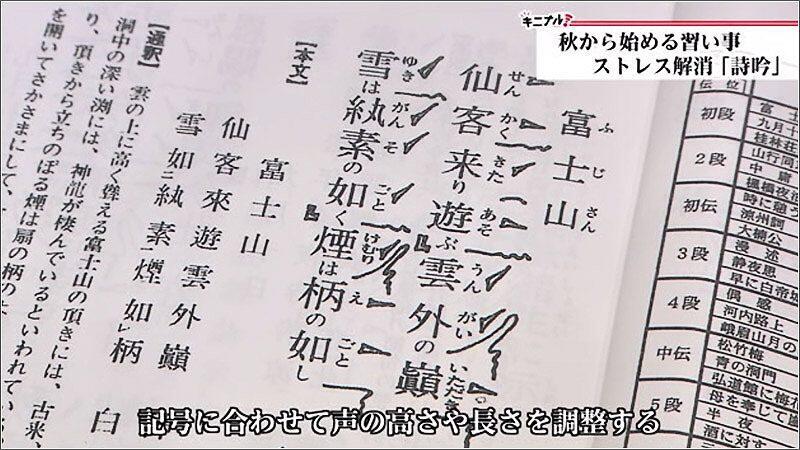 キニナル!
秋から始める習い事
ストレス解消「詩吟」
富士山
ふじさん
仙客来り遊ぶ雲外の巓
せんかくきたあそうんがいいただき
雪は紈素の如く煙は柄の如し
ゆきがんそごとけむりえごと
【本文】
富士山
仙客來遊雲外巓
雪如紈素煙如柄
白
【通釈】 雲の上に高く聳える富士山の頂きには、古来、
洞中の深い渕には、神龍が棲んでいるといわれてい
り、頂きから立ちのぼる煙は扇の柄の
を開いてさかさまにして、
伝位
初段
2段
初伝
3段
4段
中伝
5段
富士
九月十
桂林荘
山行同
中庸
楓橋夜泊
時に憩う
涼州詞
大楠公
漫述
静夜思
早に白帝城
偶感
河内路上
峨眉山月の
松竹梅
青の洞門
弘道館に梅花
母を奉じて嵐
半夜
酒に対す
記号に合わせて声の高さや長さを調整する